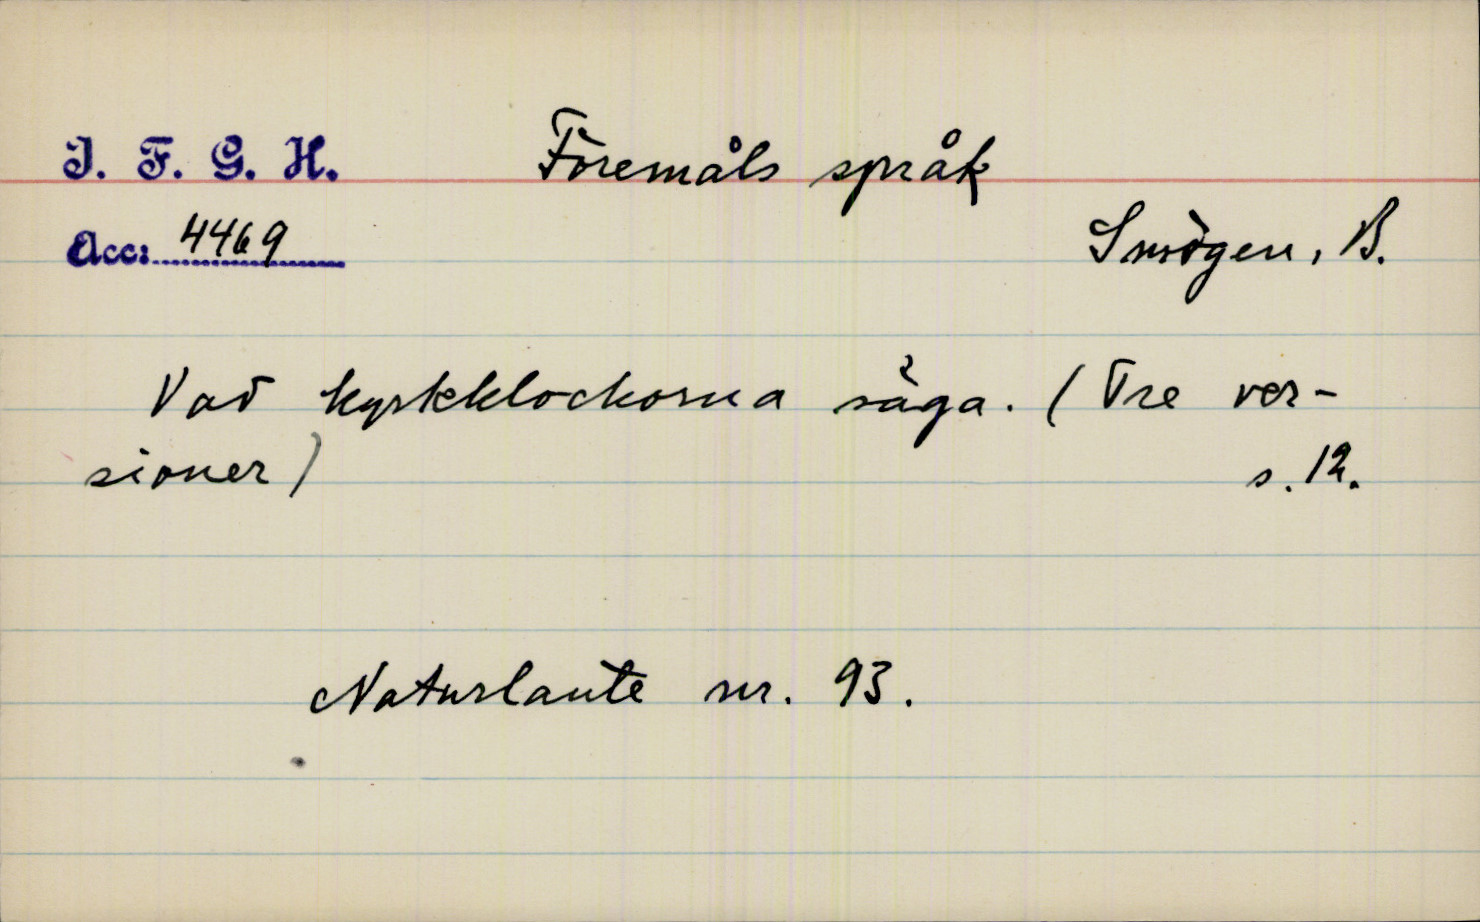 I. F. G. H. Föremåls språk
Acc: 4469 Smögen, B.
Vad kyrkklockorna säga. (Tre ver-
sioner) s. 12.
Naturlaute nr. 93.